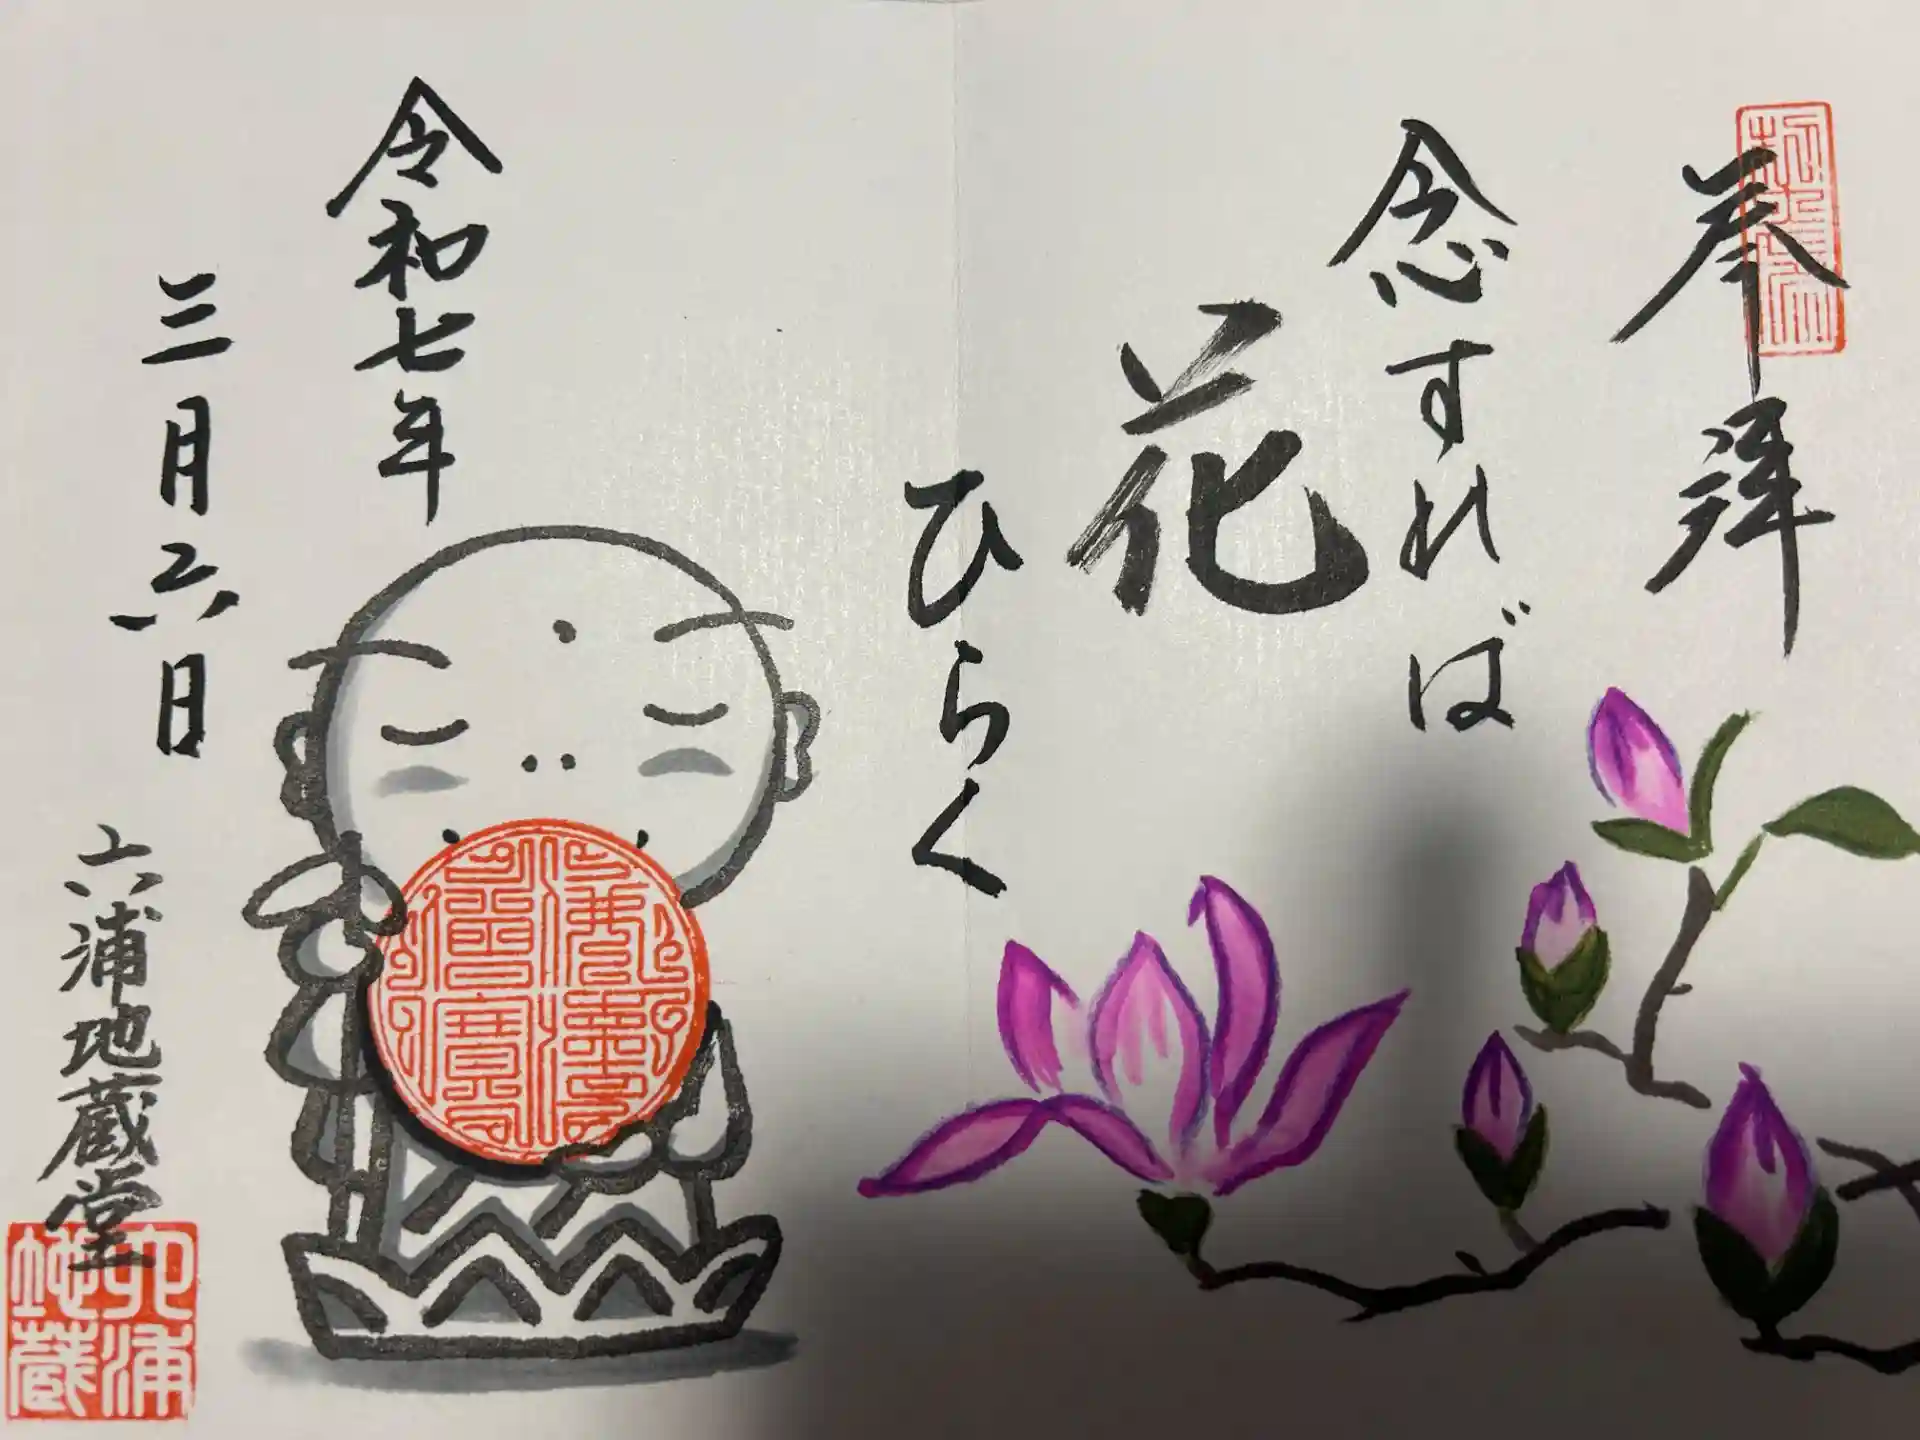 奉拝
念すれば
花
ひらく
令和七年
三月六日
六浦地蔵堂
佛法僧寳
六浦
地蔵